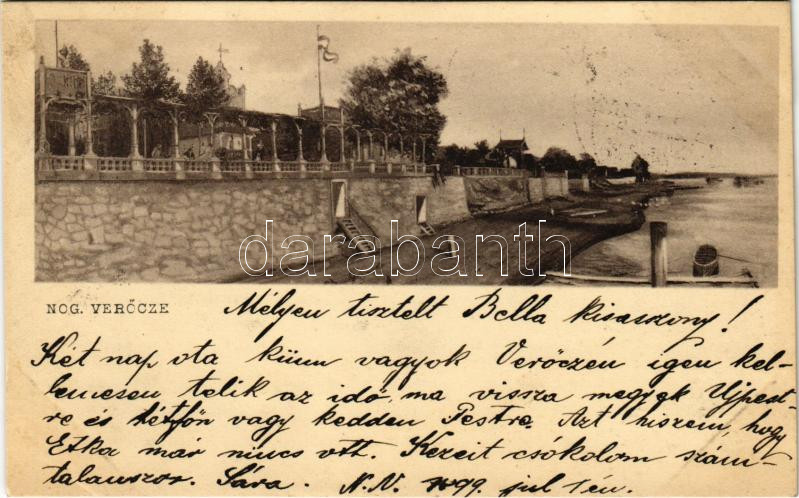 darabanth
NOG. VERŐCZE
Mélyen tisztelt Bella kisasszony!
Két nap ota künn vagyok Verőczén igen kel-
lemesen telik az idő, ma vissza megyek Ujpest-
re és hétfőn vagy kedden Pestre. Azt hiszem, hogy
Etka már nincs ott. Kezeit csókolom szám-
talanszor. Sára. N.V. 1899. jul 1én.